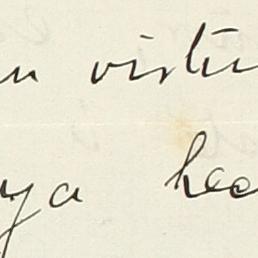 en virtu
ya hec